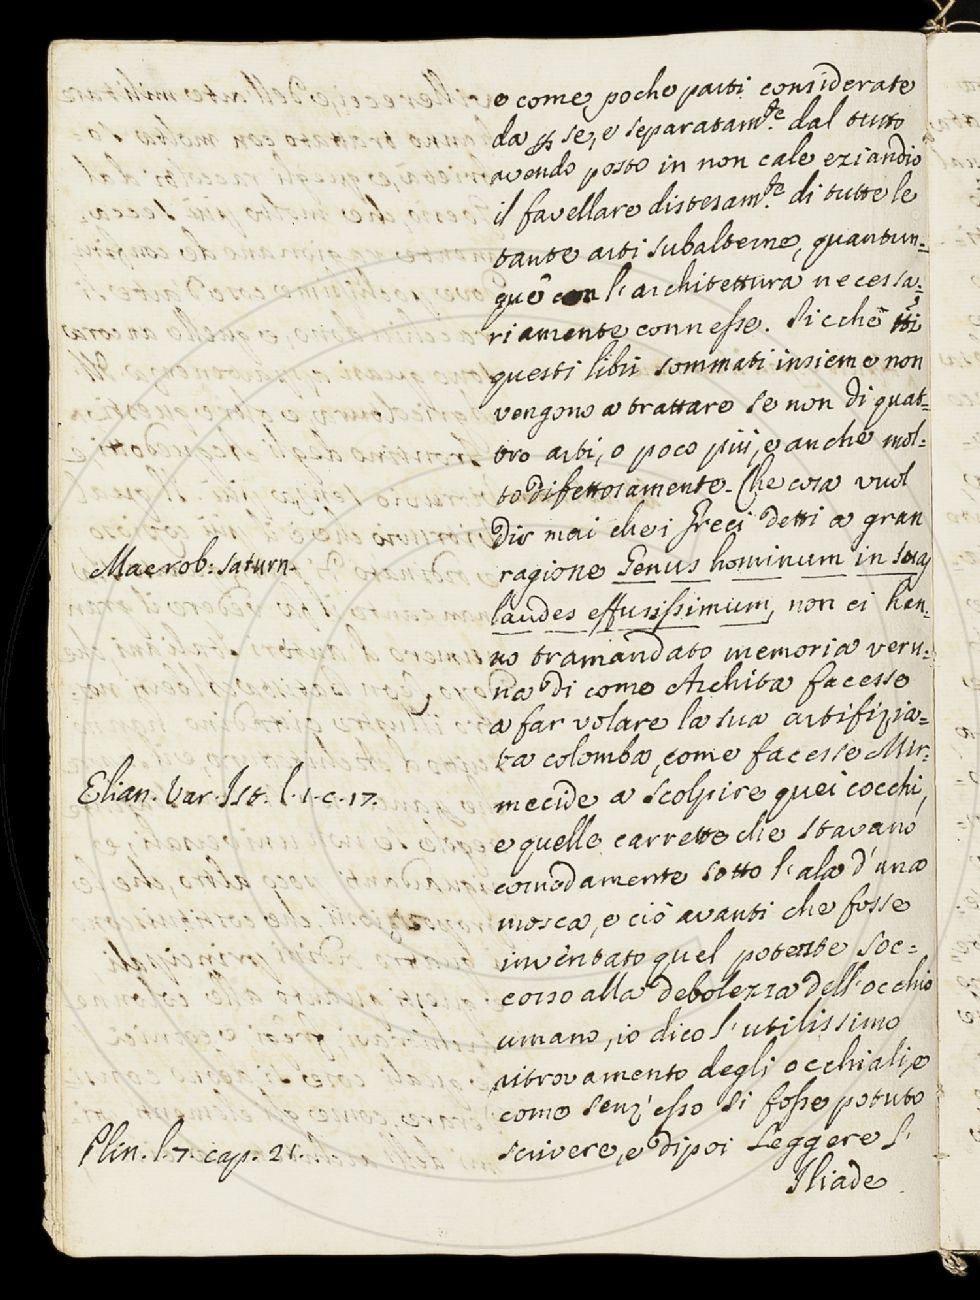 e come poche parti considerate
da p se, e separatam.te dal tutto
avendo posto in non cale eziandio
il favellare distesam.te di tutte le
tante arti subalterne, quantun=
que con l'architettura necessa=
riamente connesse. Sicchè tti
questi libri sommati insieme non
vengono a trattare se non di quat=
tro arti, o poco più, e anche mol=
to difettosamente. Che cosa vuol
dir mai che i Greci detti a gran
Macrob: Saturn.
ragione Genus hominum in suas
laudes effusissimum, non ci han=
no tramandato memoria veru=
na di come Archita facesse
a far volare la sua artifizia=
ta colomba, come facesse Mir=
Elian. Var. Ist. l. 1. c. 17.
mecide a scolpire quei cocchi,
e quelle carrette che stavano
comodamente sotto l'ala d'una
mosca, e ciò avanti che fosse
inventato quel potente soc=
corso alla debolezza dell'occhio
umano, io dico l'utilissimo
ritrovamento degli occhiali, e
come senz'esso si fosse potuto
Plin. l. 7. cap. 21.
scrivere, e dipoi leggere l'
Iliade